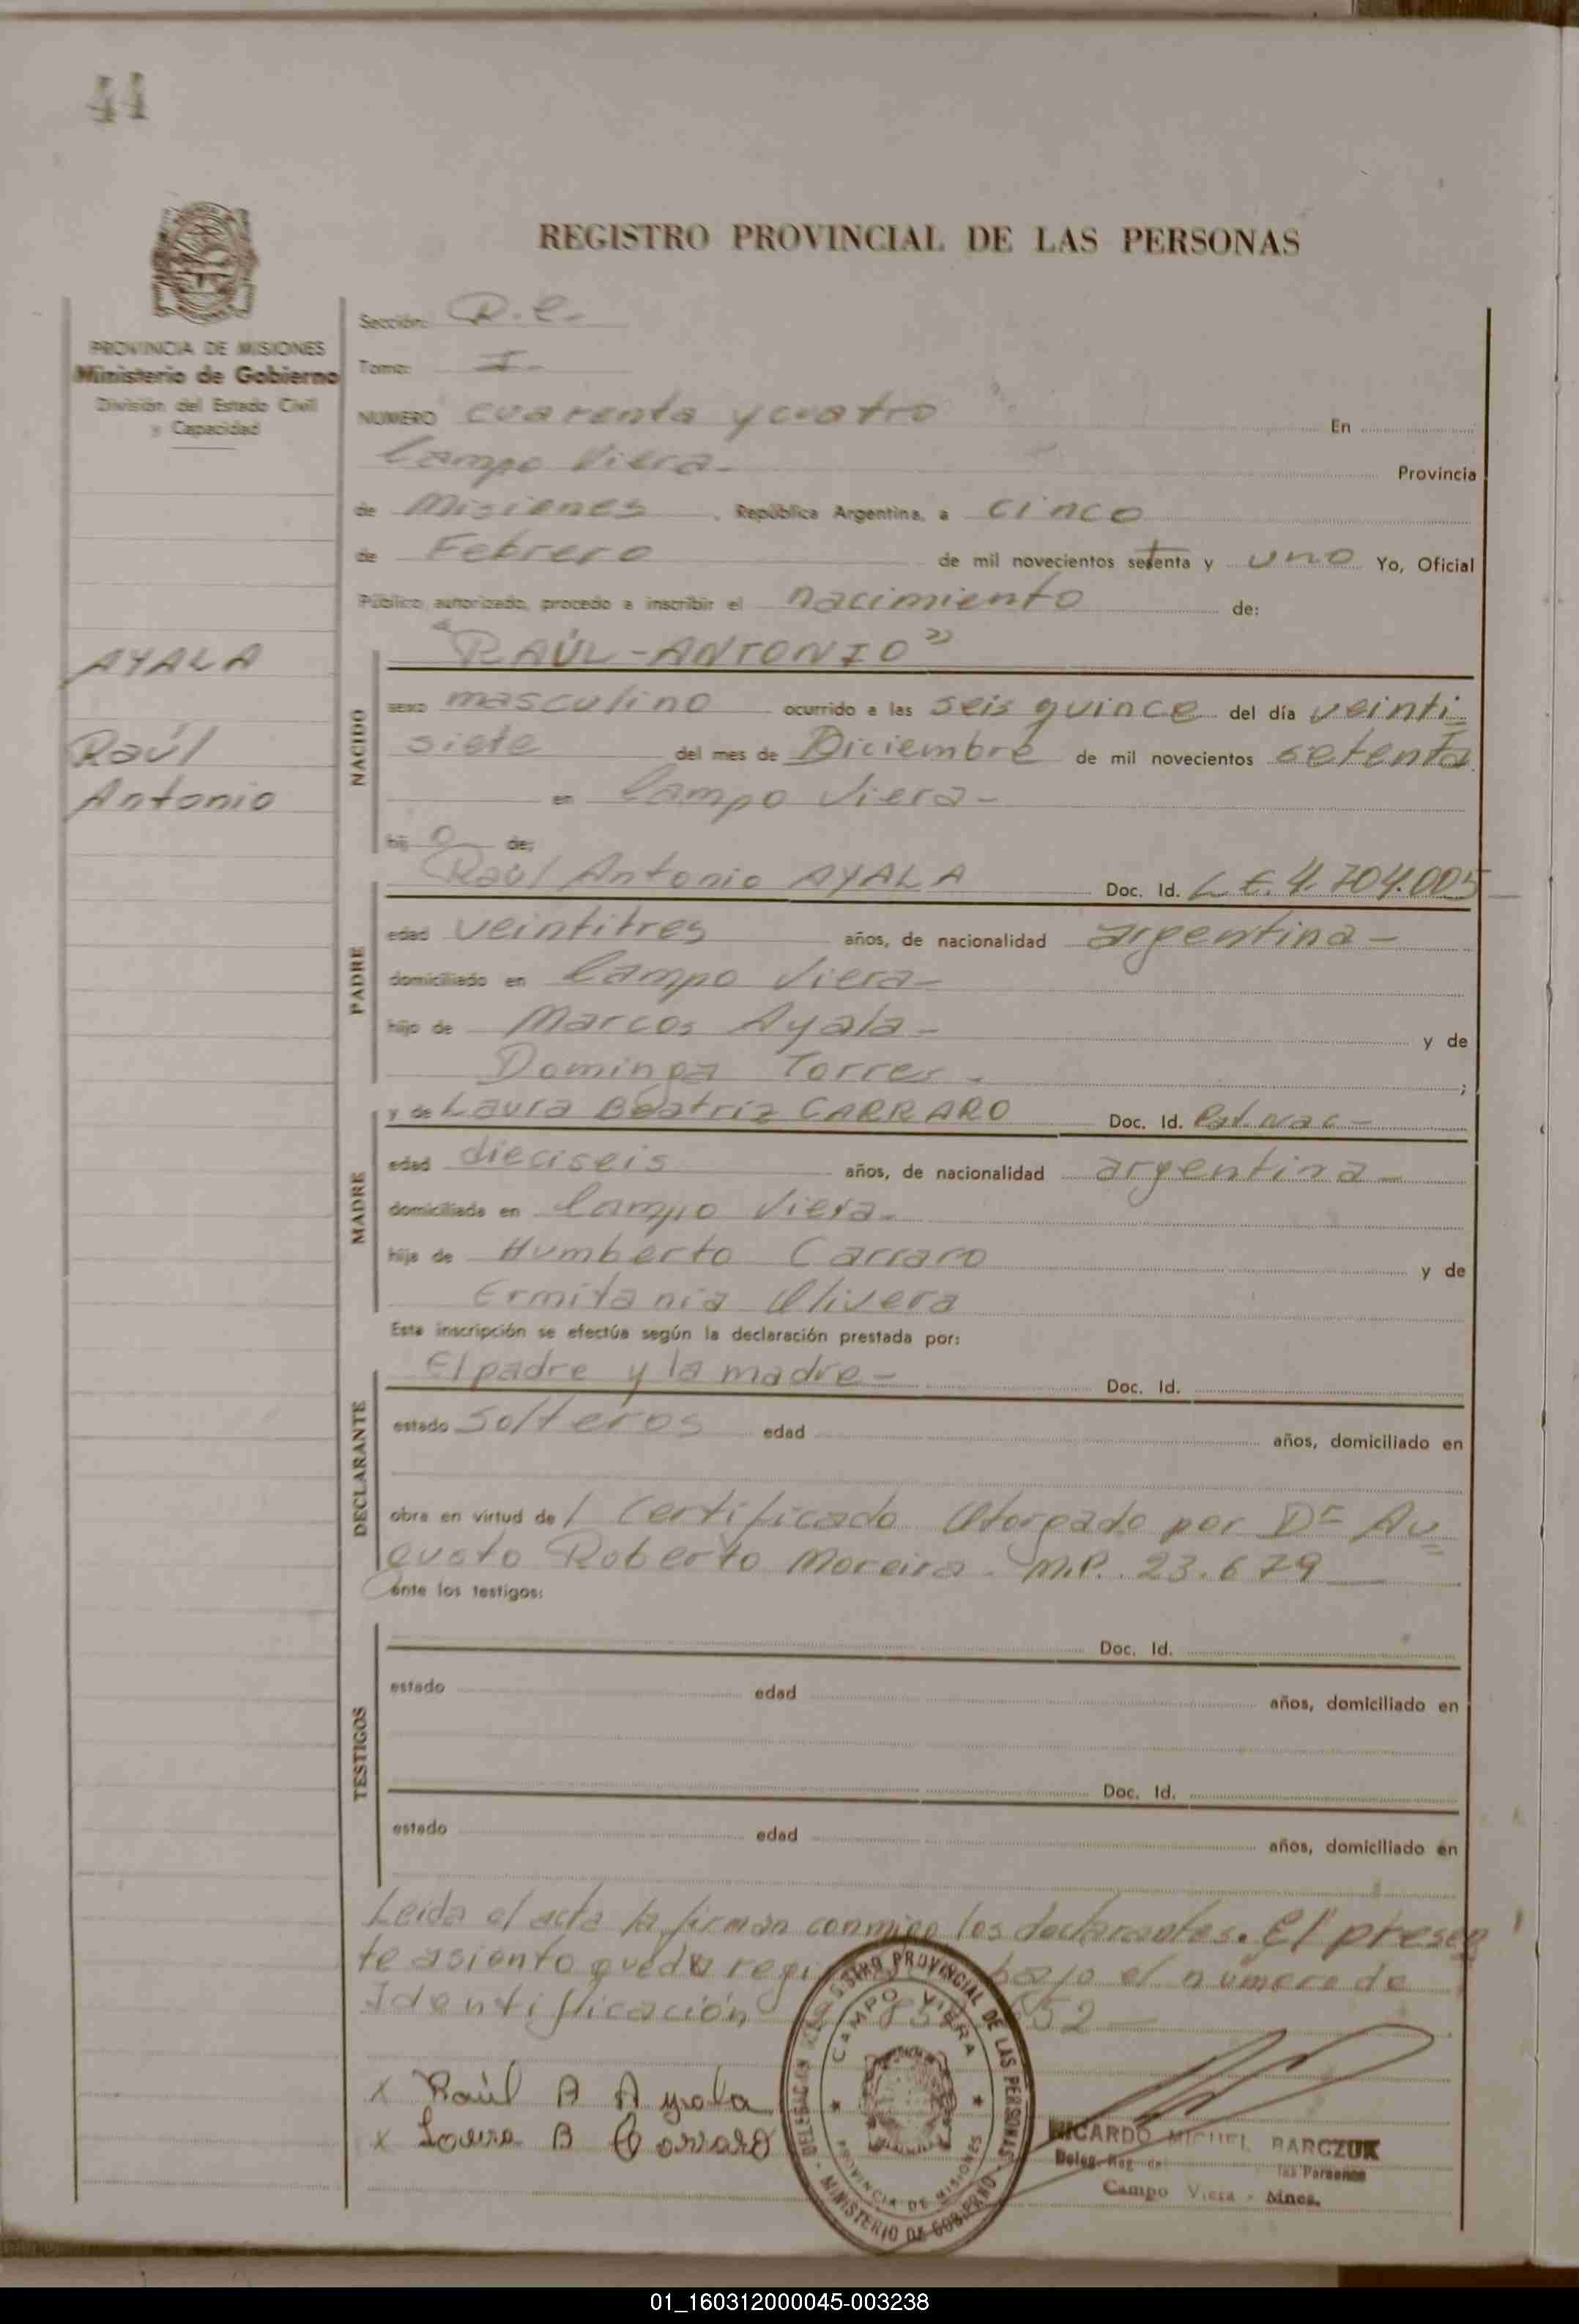 44
REGISTRO PROVINCIAL DE LAS PERSONAS
PROVINCIA DE MISIONES
Ministerio de Gobierno
División del Estado Civil
y Capacidad
AYALA
Raúl
Antonio
Sección:
Tomo: I-
NUMERO cuarenta y cuatro En
Campo Viera- Provincia
de Misiones, República Argentina, a cinco
de Febrero de mil novecientos setenta y uno Yo, Oficial
Público autorizado, procedo a inscribir el nacimiento de:
NACIDO
"RAÚL-ANTONIO"
sexo masculino ocurrido a las seis quince del día veinti=
siete del mes de Diciembre de mil novecientos setenta
en Campo Viera-
hij o de:
PADRE
Raúl Antonio AYALA Doc. Id. L E. 4.704.005
edad veintitres años, de nacionalidad argentina-
domiciliado en Campo Viera-
hijo de Marcos Ayala- y de
Dominga Torres- ;
MADRE
y de Laura Beatriz CARRARO Doc. Id.
edad dieciseis años, de nacionalidad argentina-
domiciliada en Campo Viera-
hija de Humberto Carraro y de
Ermitania Olivera
Esta inscripción se efectúa según la declaración prestada por:
DECLARANTE
El padre y la madre- Doc. Id.
estado solteros edad años, domiciliado en
obra en virtud de 1 Certificado Otorgado por Dr Au=
gusto Roberto Moreira. M.P. 23.679
ante los testigos:
TESTIGOS
Doc. Id.
estado edad años, domiciliado en
Doc. Id.
estado edad años, domiciliado en
Leida el acta la firman conmigo los declarantes. El presen
te asiento queda bajo el número de
Identificación
x Raúl A Ayala
x Laura B Carraro
REGISTRO PROVINCIAL DE LAS PERSONAS
CAMPO VIERA
PROVINCIA DE MISIONES
MINISTERIO DE GOBIERNO
RICARDO MIGUEL BARCZUK
Deleg. Reg. de las Personas
Campo Viera - Mnes.
01_160312000045-003238